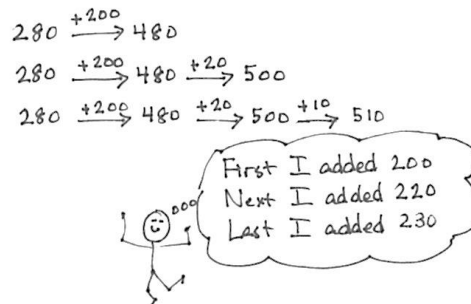 280 +200→ 480
280 +200→ 480 +20→ 500
280 +200→ 480 +20→ 500 +10→ 510
First I added 200
Next I added 220
Last I added 230